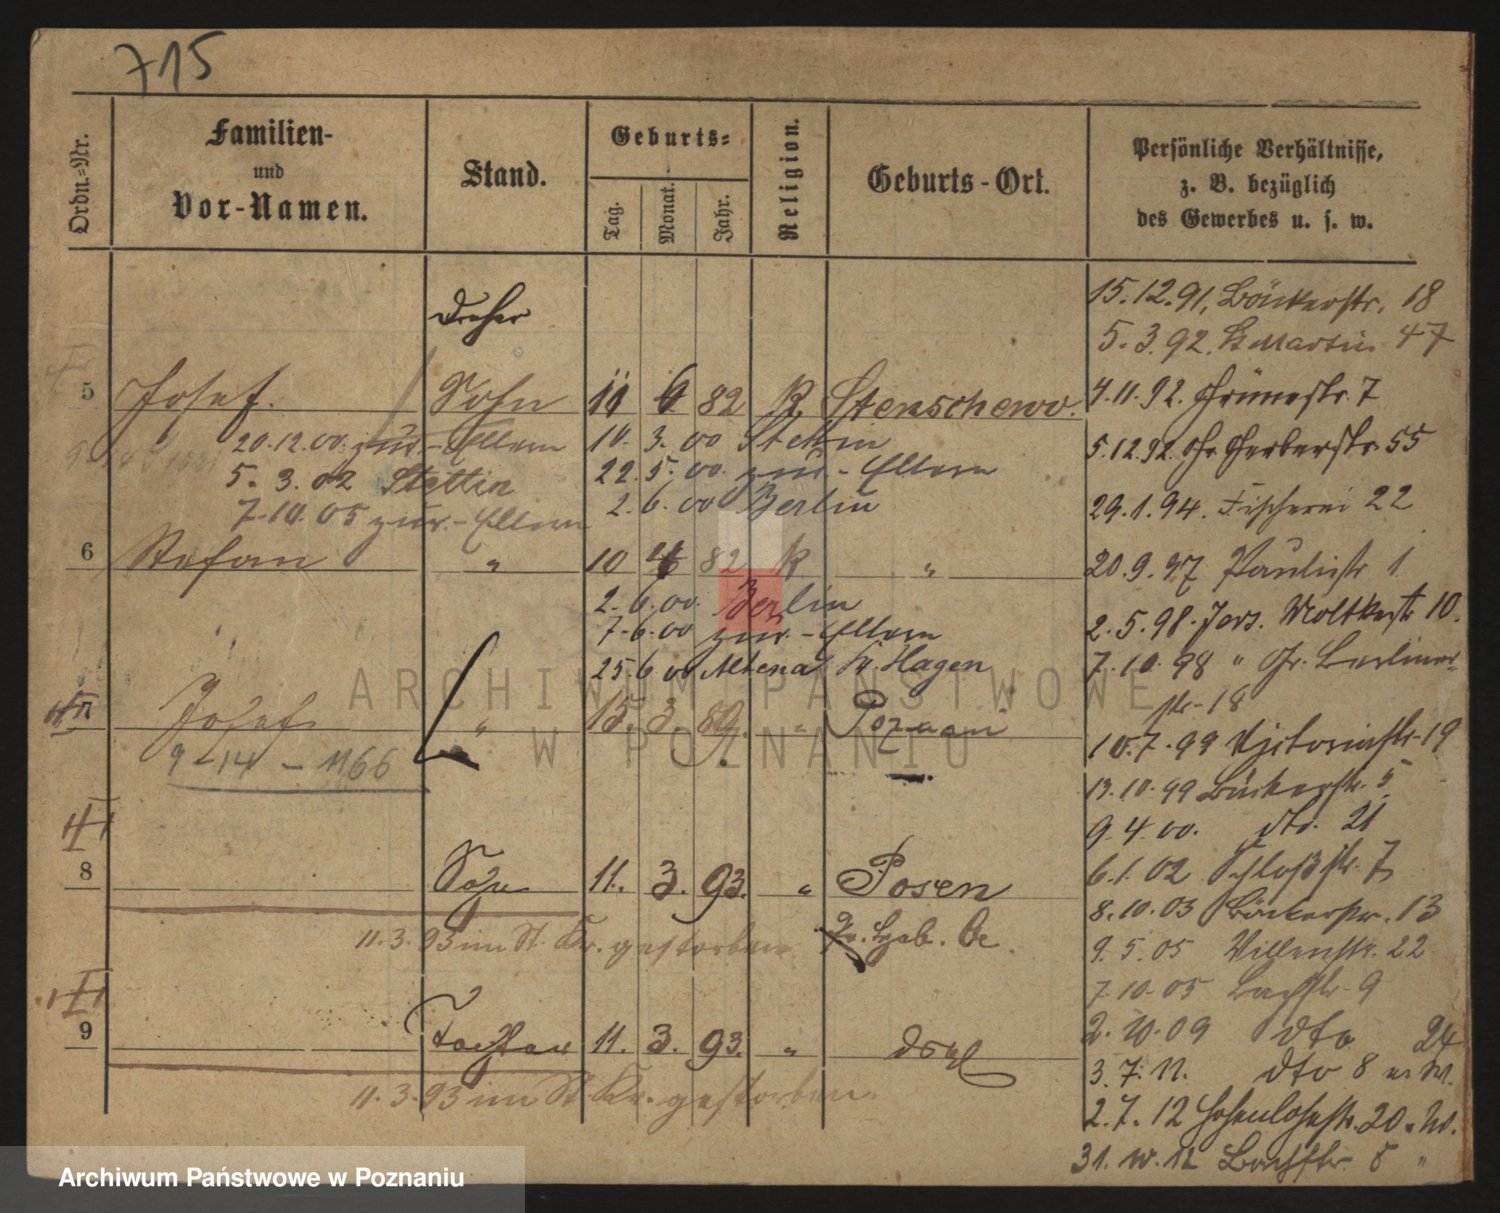 715
Ordn.-Nr.
Familien-
und
Vor-Namen.
Stand.
Geburts-
Tag.
Monat.
Jahr.
Religion.
Geburts-Ort.
Persönliche Verhältnisse,
z. B. bezüglich
des Gewerbes u. s. w.
Dreher
15.12.91, Bäckerstr. 18
5.3.92. St Martin 47
5 Josef. Sohn 11 6 82 K. Stenschewo.
4.11.92. Grünestr. 7
20.12.00. zur.-Eltern 10. 3. 00 Stettin
5.12.92. Gr. Gerberstr. 55
5. 3. 02 Stettin 22. 5. 00. zur.-Eltern
7.10.05 zur.-Eltern 2. 6. 00 Berlin
29.1.94. Fischerei 22
6 Stefan " 10 4 82 K "
20.9.97 Paulistr 1
2. 6. 00. Berlin
7. 6. 00 zur.-Eltern
2.5.98. Jers. Moltkestr 10.
25. 6 00 Altena Kr. Hagen
7.10.98 " Gr. Berliner-
str. 18
7 Josef " 15. 3. 89. " Poznani
9-14 - 1166
10.7.99 Victoriastr. 19
13.10.99 Bäckerstr. 5
9.4.00. dto. 21
6.1.02 Schloßstr. 7
8 Sohn 11. 3. 93. " Posen
8.10.03 Bäckerstr. 13
11.3.93 im St. Kr. gestorben
9.5.05 Villenstr. 22
7.10.05 Bachstr. 9
9 Tochter 11. 3. 93. " dsgl
2.10.09 dto 24
3.7.11. dto 8
11.3.93 im St. Kr. gestorben.
2.7.12 Hohenlohestr. 20
31.10.12 Bachstr. 8 "
ARCHIWUM PAŃSTWOWE
W POZNANIU
Archiwum Państwowe w Poznaniu